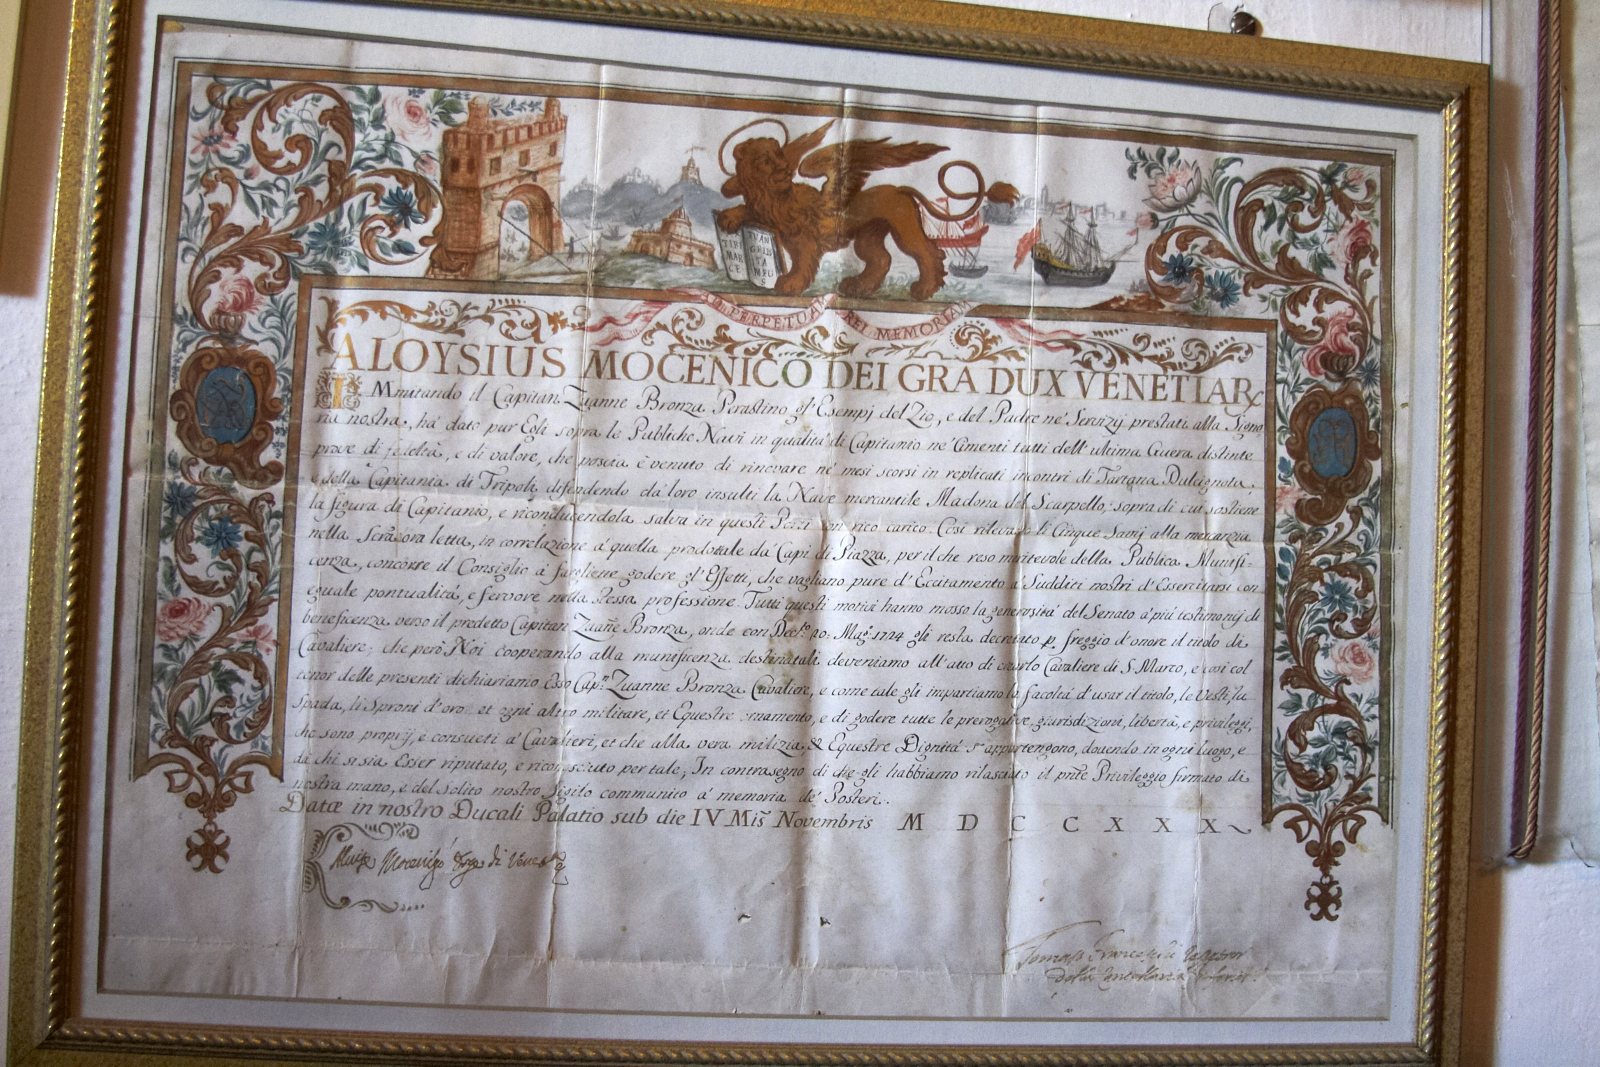 TIBI
MAR
CE
EVAN
GELIS
TA
MEU
S
PERPETUAM REI MEMORIAM
ALOYSIUS MOCENICO DEI GRA DUX VENETIAR
IMmitando il Capitan Zuanne Bronza Perastino gl'Esempj del Zio, e del Padre ne' Servizij prestati alla Signo
ria nostra, hà dato pur Egli sopra le Publiche Navi in qualità di Capitanio ne' Cimenti tutti dell'ultima Guera distinte
prove di fedeltà, e di valore, che poscia è venuto di rinovare ne' mesi scorsi in replicati incontri di Tartana Dulcignota,
e della Capitania di Tripoli, difendendo da' loro insulti la Nave mercantile Madona del Scarpello, sopra di cui sostiene
la figura di Capitanio, e riconducendola salva in questi Porti con rico carico. Così rilevano li Cinque Savij alla mercanzia
nella Scrāora letta, in correlazione à quella prodotta le da' Capi di Piazza, per il che reso meritevole della Publica Munifi-
cenza, concorre il Consiglio à fargliene godere gl'Effetti, che vagliano pure d'Eccitamento a' Sudditi nostri d'Essercitarsi con
eguale pontualità, e fervore nella stessa professione. Tutti questi motivi hanno mosso la generosità del Senato à più testimonij di
beneficenza verso il predetto Capitan Zuañe Bronza, onde con Decto 20: Mago 1724 gli resta decretato p. freggio d'onore il titolo di
Cavaliere; che però Noi cooperando alla munificenza destinatali deveniamo all'atto di crearlo Cavaliere di S. Marco, e così col
tenor delle presenti dichiariamo Esso Capn Zuanne Bronza Cavaliere, e come tale gli impartiamo la facoltà d'usar il titolo, le Vesti, la
Spada, li Sproni d'oro et ogni altro militare, et Equestre ornamento, e di godere tutte le prerogative, giurisdizioni, libertà, e privileggi,
che sono proprij, e consueti a' Cavalieri, et che alla vera milizia, & Equestre Dignità s'appartengono, dovendo in ogni luogo, e
da chi si sia Esser riputato, e riconosciuto per tale, In contrasegno di che gli habbiamo rilasciato il pnte Privileggio firmato di
nostra mano, e del solito nostro Sigilo communito à memoria de' Posteri.
Datæ in nostro Ducali Palatio sub die IV Mis Novembris M D C C X X X
Alvise Mocenigo Doge di Venezia
Tomaso Franceschi
della Cancellaria